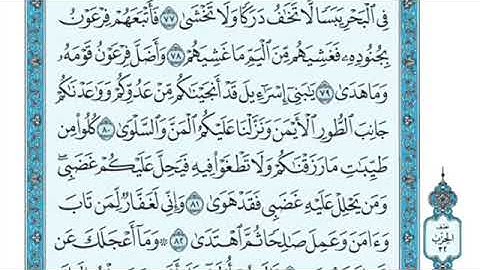 فِي ٱلْبَحْرِ يَبَسًا لَّا تَخَٰفُ دَرَكًا وَلَا تَخْشَىٰ ٧٧ فَأَتْبَعَهُمْ فِرْعَوْنُ
بِجُنُودِهِۦ فَغَشِيَهُم مِّنَ ٱلْيَمِّ مَا غَشِيَهُمْ ٧٨ وَأَضَلَّ فِرْعَوْنُ قَوْمَهُۥ
وَمَا هَدَىٰ ٧٩ يَٰبَنِىٓ إِسْرَٰٓءِيلَ قَدْ أَنجَيْنَٰكُم مِّنْ عَدُوِّكُمْ وَوَٰعَدْنَٰكُمْ
جَانِبَ ٱلطُّورِ ٱلْأَيْمَنَ وَنَزَّلْنَا عَلَيْكُمُ ٱلْمَنَّ وَٱلسَّلْوَىٰ ٨٠ كُلُوا۟ مِن
طَيِّبَٰتِ مَا رَزَقْنَٰكُمْ وَلَا تَطْغَوْا۟ فِيهِ فَيَحِلَّ عَلَيْكُمْ غَضَبِى ۖ
وَمَن يَحْلِلْ عَلَيْهِ غَضَبِى فَقَدْ هَوَىٰ ٨١ وَإِنِّى لَغَفَّارٌ لِّمَن تَابَ
وَءَامَنَ وَعَمِلَ صَٰلِحًا ثُمَّ ٱهْتَدَىٰ ٨٢ ۞ وَمَآ أَعْجَلَكَ عَن
نصف
الحزب
٣٢